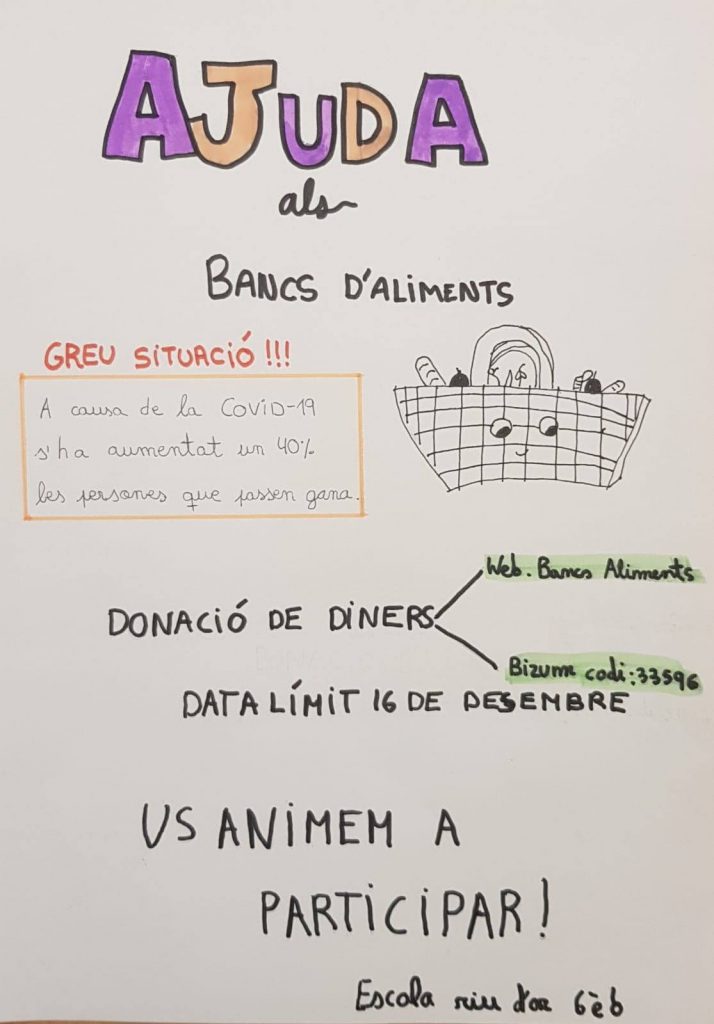 AJUDA
als
BANCS D'ALIMENTS
GREU SITUACIÓ!!!
A causa de la COVID-19
s'ha aumentat un 40%
les persones que passen gana.
Web. Bancs Aliments
DONACIÓ DE DINERS
Bizum codi: 33596
DATA LÍMIT 16 DE DESEMBRE
US ANIMEM A
PARTICIPAR!
Escola riu d'or 6èb